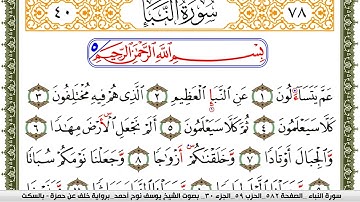 ٤٠ سُورَةُ النَّبَإِ ٧٨
بِسْمِ اللَّهِ الرَّحْمَٰنِ الرَّحِيمِ ٥
عَمَّ يَتَسَآءَلُونَ ١ عَنِ النَّبَإِ الْعَظِيمِ ٢ الَّذِى هُمْ فِيهِ مُخْتَلِفُونَ ٣
كَلَّا سَيَعْلَمُونَ ٤ ثُمَّ كَلَّا سَيَعْلَمُونَ ٥ أَلَمْ نَجْعَلِ الْأَرْضَ مِهَٰدًا ٦
وَالْجِبَالَ أَوْتَادًا ٧ وَخَلَقْنَٰكُمْ أَزْوَٰجًا ٨ وَجَعَلْنَا نَوْمَكُمْ سُبَاتًا
سورة النبإ _ الصفحة ٥٨٢_ الحزب ٥٩_ الجزء ٣٠ _ بصوت الشيخ يوسف نوح أحمد_ برواية خلف عن حمزة - بالسكت